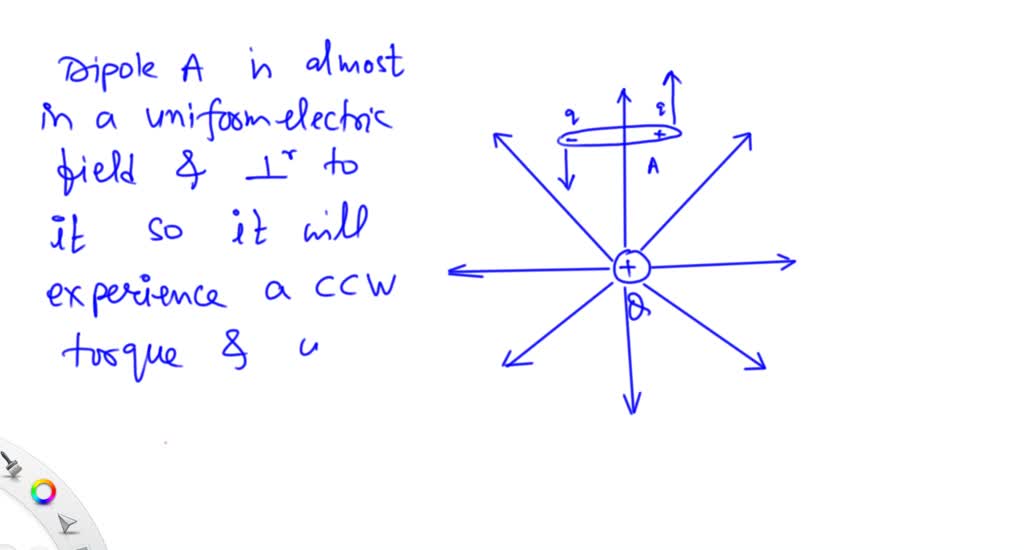 Dipole A is almost
in a uniform electric
field & ⊥r to
it so it will
experience a CCW
torque & u
q q
- +
A
+
Q